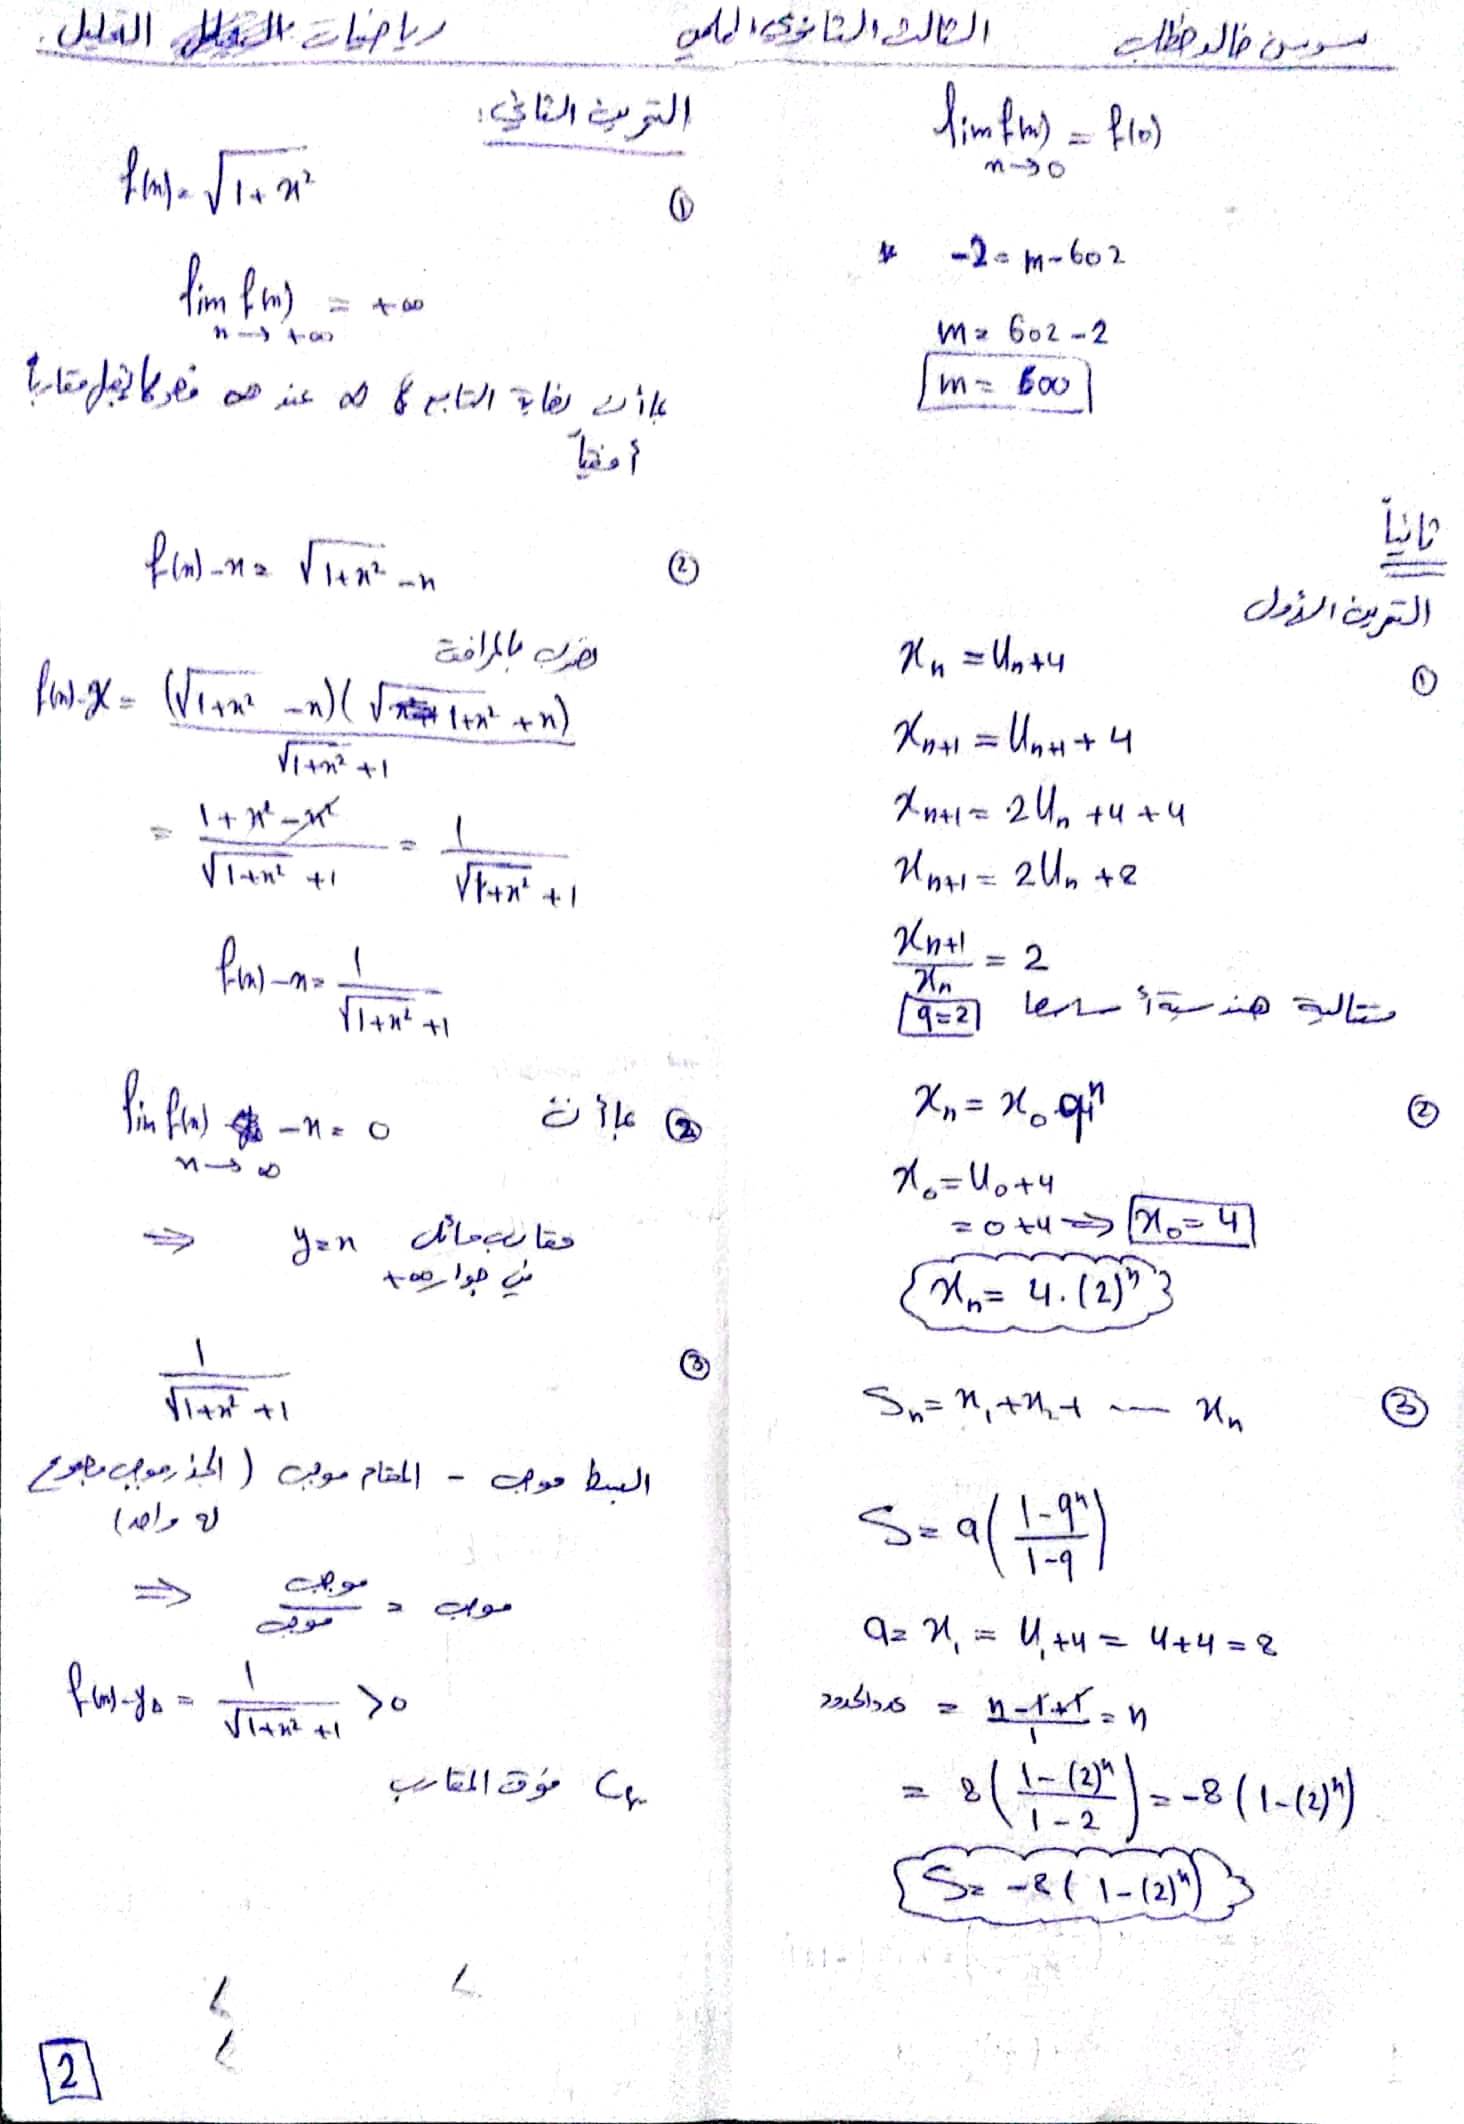 سوسن خالد خطاب الثالث الثانوي العلمي رياضيات التحليل.
lim f(x) = f(0)
x→0
* -2 = m-602
m = 602-2
m = 600
ثانياً
التمرين الأول
①
xₙ = Uₙ+4
xₙ₊₁ = Uₙ₊₁+4
xₙ₊₁ = 2Uₙ+4+4
xₙ₊₁ = 2Uₙ+8
xₙ₊₁/xₙ = 2
متتالية هندسية أساسها q=2
②
xₙ = x₀ qⁿ
x₀ = U₀+4
= 0+4 ⇒ x₀ = 4
xₙ = 4.(2)ⁿ
③
Sₙ = x₁+x₂+ --- xₙ
S = a((1-qⁿ)/(1-q))
a = x₁ = U₁+4 = 4+4 = 8
عدد الحدود = (n-1+1)/1 = n
= 8((1-(2)ⁿ)/(1-2)) = -8(1-(2)ⁿ)
S = -8(1-(2)ⁿ)
التمرين الثاني:
①
f(x) = √(1+x²)
lim f(x) = +∞
x→+∞
بما أن نهاية التابع f ∞ عند ∞ فهو لا يقبل مقارباً
أفقياً
②
f(x)-x = √(1+x²) -x
نضرب بالمرافق
f(x)-x = (√(1+x²) -x)(√(1+x²) +x)/(√(1+x²) +1)
= (1+x²-x²)/(√(1+x²) +1) = 1/(√(1+x²) +1)
f(x)-x = 1/(√(1+x²) +1)
② بما أن lim f(x) -x = 0
x→∞
⇒ y=x مقارب مائل
في جوار +∞
③
1/(√(1+x²) +1)
البسط موجب - المقام موجب (الجذر موجب مجموع
له واحد)
⇒ موجب/موجب = موجب
f(x)-y₀ = 1/(√(1+x²) +1) >0
C_f فوق المقارب
2